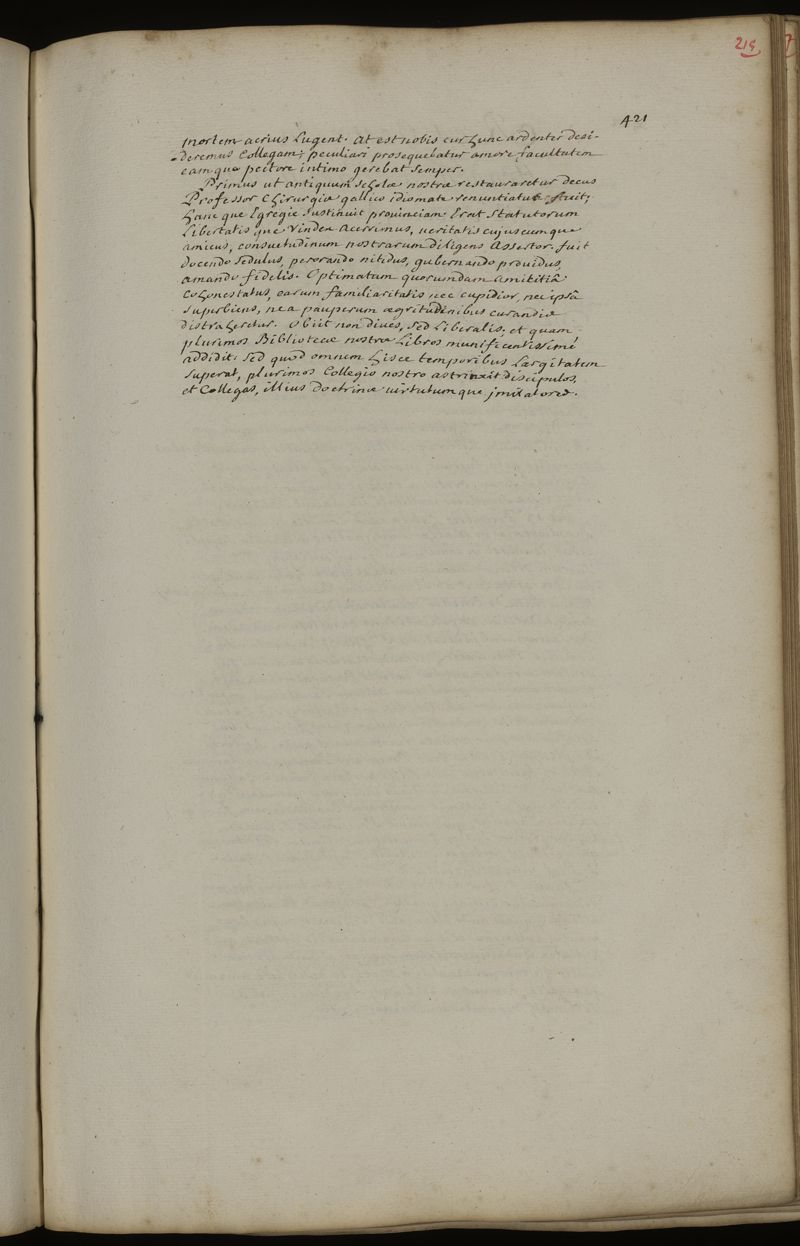 218
421
mortem acrius Lugent. at est nobis cur hunc ardenter desi-
-deremus Collegam; peculiari prosequebatur amore facultatem
eamque pectore intimo gerebat semper.
Primus ut antiquum scholæ nostræ restauraretur decus
Professor Chirurgiæ gallico idiomate renuntiatus fuit;
hanc que Egregie sustinuit prouinciam. Erat Statutorum
Libertatis que Vindex acerrimus, ueritatis cujuscumque
amicus, consuetudinum nostrarum diligens assertor. fuit
docendo sedulus, perorando nitidus, gubernando prouidus,
amando fidelis. Optimatum quorumdam amicitiâ
cohonestatus, earum familiaritatis nec cupidior, nec ipsâ
superbiens, ne a pauperum ægritudinibus curandis
distraheretur. Obiit non diues, sed Liberalis; et quam
plurimos Bibliotecæ nostræ Libros munificentissimè
addidit. sed quod omnem hisce temporibus Largitatem
superat, plurimos Collegio nostro astrinxit discipulos,
et Collegas, illius doctrinæ uirtutumque jmitatores.